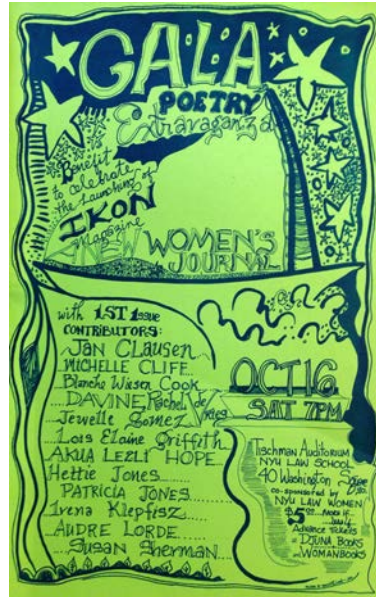 GALA
POETRY
Extravaganza
Benefit
to celebrate
the launching of
IKON
Magazine
A NEW WOMEN'S
JOURNAL
with 1ST Issue
CONTRIBUTORS:
JAN CLAUSEN
MICHELLE CLIFF
Blanche Wiesen Cook
DAVINE
Rachel de
Vries
Jewelle Gomez
Lois Elaine Griffith
AKUA LEZLI HOPE
Hettie Jones
PATRICIA JONES
Irena Klepfisz
AUDRE LORDE
Susan Sherman
OCT 16
SAT 7PM
Tischman Auditorium
NYU LAW SCHOOL
40 Washington Square
co-sponsored by
NYU LAW WOMEN
$5
Advance tickets
DJUNA BOOKS
WOMANBOOKS